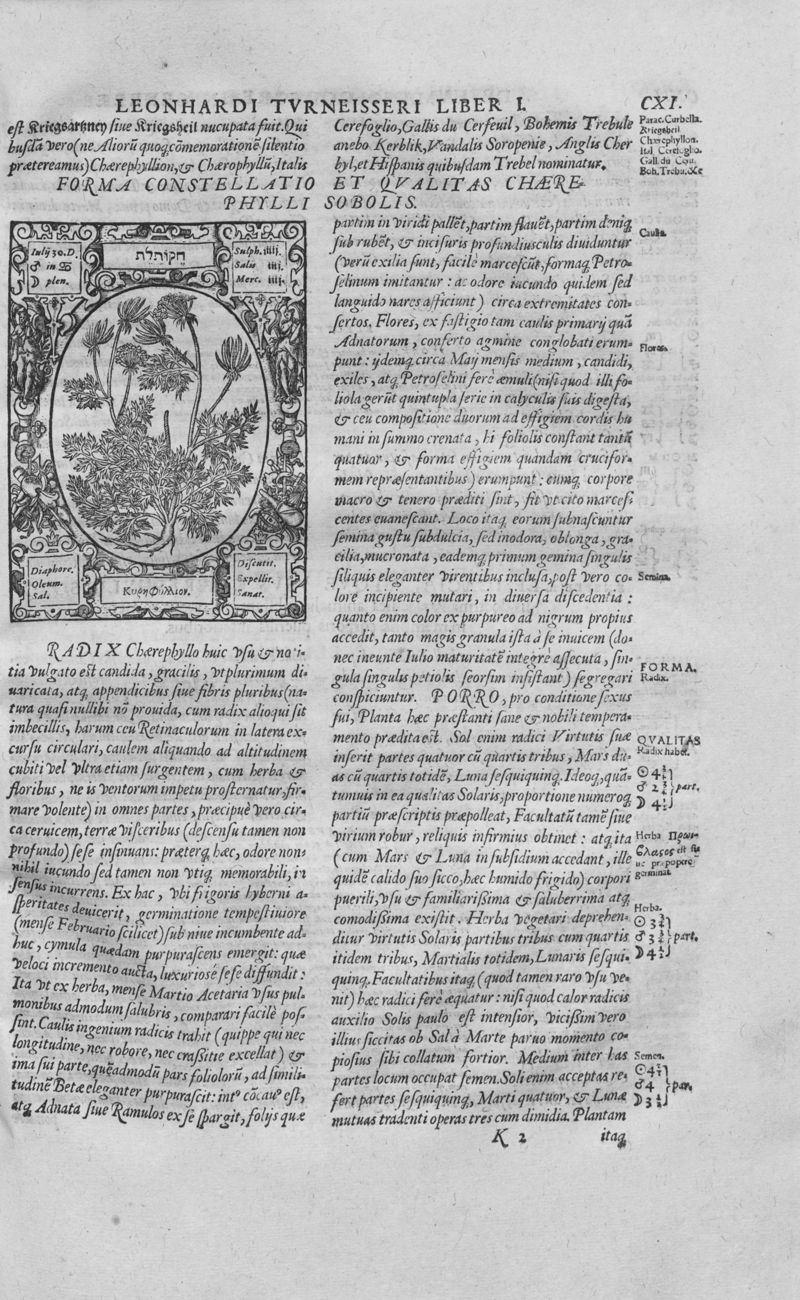 LEONHARDI TVRNEISSERI LIBER I. CXI.
est Kriegsartzney siue Kriegsheil nucupata fuit. Qui
busdā vero (ne Aliorū quoq; cōmemorationē silentio
prætereamus) Chærephyllion, & Chærophyllū, Italis
Cerefoglio, Gallis du Cerfeuil, Bohemis Trebule
anebo Kerblik, Vandalis Soropenie, Anglis Cher
byl, et Hispanis quibusdam Trebel nominatur.
Parac. Curbella.
Kriegsheil
Chærephyllon.
Ital. Cerefoglio.
Gall. du
Boh. Trebu. &c
FORMA CONSTELLATIO ET QVALITAS CHÆRE-
PHYLLI SOBOLIS.
Iulij 30. D.
♂ in ♋
☽ plen.
חקותלת
Sulph. iiij.
Salis iiij.
Merc. iiij.
Diaphore.
Oleum.
Sal.
ΚυρηΦύλλιον.
Discutit.
Expellit.
Sanat.
RADIX Chærephyllo huic vsu & noti-
tia vulgato est candida, gracilis, vt plurimum di-
uaricata, atq; appendicibus siue fibris pluribus (na-
tura quasi nullibi nō prouida, cum radix alioqui sit
imbecillis, harum ceu Retinaculorum in latera ex-
cursu circulari, caulem aliquando ad altitudinem
cubiti vel vltra etiam surgentem, cum herba &
floribus, ne is ventorum impetu prosternatur, fir-
mare volente) in omnes partes, præcipuè vero cir-
ca ceruicem, terræ visceribus (descensu tamen non
profundo) sese insinuans: præterq; hæc, odore non-
nihil iucundo sed tamen non vtiq; memorabili, in
sensus incurrens. Ex hac, vbi frigoris hyberni a-
speritates deuicerit, germinatione tempestiuiore
(mense Februario scilicet) sub niue incumbente ad-
huc, cymula quædam purpurascens emergit: quæ
veloci incremento aucta, luxuriosè sese diffundit:
Ita vt ex herba, mense Martio Acetaria vsus pul-
monibus admodum salubris, comparari facilè pos-
sint. Caulis ingenium radicis trahit (quippe qui nec
longitudine, nec robore, nec crassitie excellat) &
ima sui parte, quēadmodū pars foliolorū, ad simili-
tudinē Betæ eleganter purpurascit: intꝰ cōcauꝰ est,
atq; Adnata siue Ramulos ex se spargit, folijs quæ
partim in viridi pallēt, partim flauēt, partim deniq;
sub rubēt, & incisuris profundiusculis diuiduntur
(verū exilia sunt, facilè marcescūt, formaq; Petro-
selinum imitantur: ac odore iucundo quidem sed
languido nares afficiunt) circa extremitates con-
fertos. Flores, ex fastigio tam caulis primarij quā
Adnatorum, conferto agmine conglobati erum-
punt: ijdemq; circa Maij mensis medium, candidi,
exiles, atq; Petroselini ferè æmuli (nisi quod illi fo-
liola gerūt quintupla serie in calyculis suis digesta,
& ceu compositione duorum ad effigiem cordis hu
mani in summo crenata, hi foliolis constant tantū
quatuor, & forma effigiem quandam crucifor-
mem repræsentantibus) erumpunt: cumq; corpore
macro & tenero præditi sint, fit vt cito marcesc
centes euanescant. Loco itaq; eorum subnascuntur
semina gustu subdulcia, sed inodora, oblonga, gra-
cilia, mucronata, eademq; primum gemina singulis
siliquis eleganter virentibus inclusa, post vero co-
lore incipiente mutari, in diuersa discedentia:
quanto enim color ex purpureo ad nigrum propius
accedit, tanto magis granula ista à se inuicem (do-
nec ineunte Iulio maturitatē integrè assecuta, sin-
gula singulis petiolis seorsim insistant) segregari
conspiciuntur. PORRO, pro conditione sexus
sui, Planta hæc præstanti sane & nobili tempera-
mento prædita est. Sol enim radici Virtutis suæ
inserit partes quatuor cū quartis tribus, Mars du-
as cū quartis totidē, Luna sesquiquinq;. Ideoq;, quā-
tumuis in ea qualitas Solaris, proportione numeroq;
partiū præscriptis præpolleat, Facultatū tamē siue
virium robur, reliquis infirmius obtinet: atq; ita
(cum Mars & Luna in subsidium accedant, ille
quidē calido suo sicco, hæc humido frigido) corpori
puerili, vsu & familiarissima & saluberrima atq;
comodissima existit. Herba vegetari deprehen-
ditur virtutis Solaris partibus tribus cum quartis
itidem tribus, Martialis totidem, Lunaris sesqui-
quinq;. Facultatibus itaq; (quod tamen raro vsu ve-
nit) hæc radici ferè æquatur: nisi quod calor radicis
auxilio Solis paulo est intensior, vicissim vero
illius siccitas ob Sal à Marte paruo momento co-
piosius sibi collatum fortior. Medium inter has
partes locum occupat semen. Soli enim acceptas re-
fert partes sesquiquinq;, Marti quatuor, & Lunæ
mutuas tradenti operas tres cum dimidia. Plantam
K 2 itaq;
Caulis.
Flores.
Semina.
FORMA.
Radix.
QVALITAS
Radix habet.
☉ 4
♂ 2 part.
☽ 4
Herba
germinat
Herba.
☉ 3
♂ 3 part.
☽ 4
Semen.
☉ 4
♂ 4 par.
☽ 3